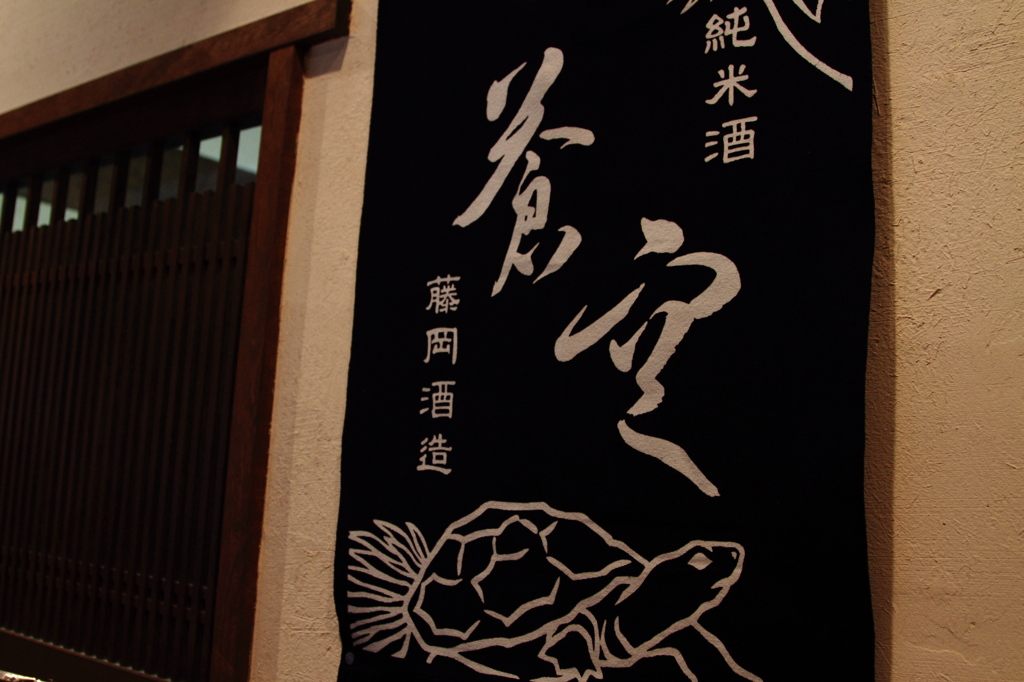 純米酒
蒼空
藤岡酒造